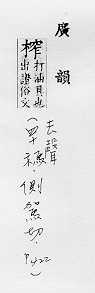 廣韻
榨打油具也
出證俗文
去聲
(四十禡·側駕切.
P422)